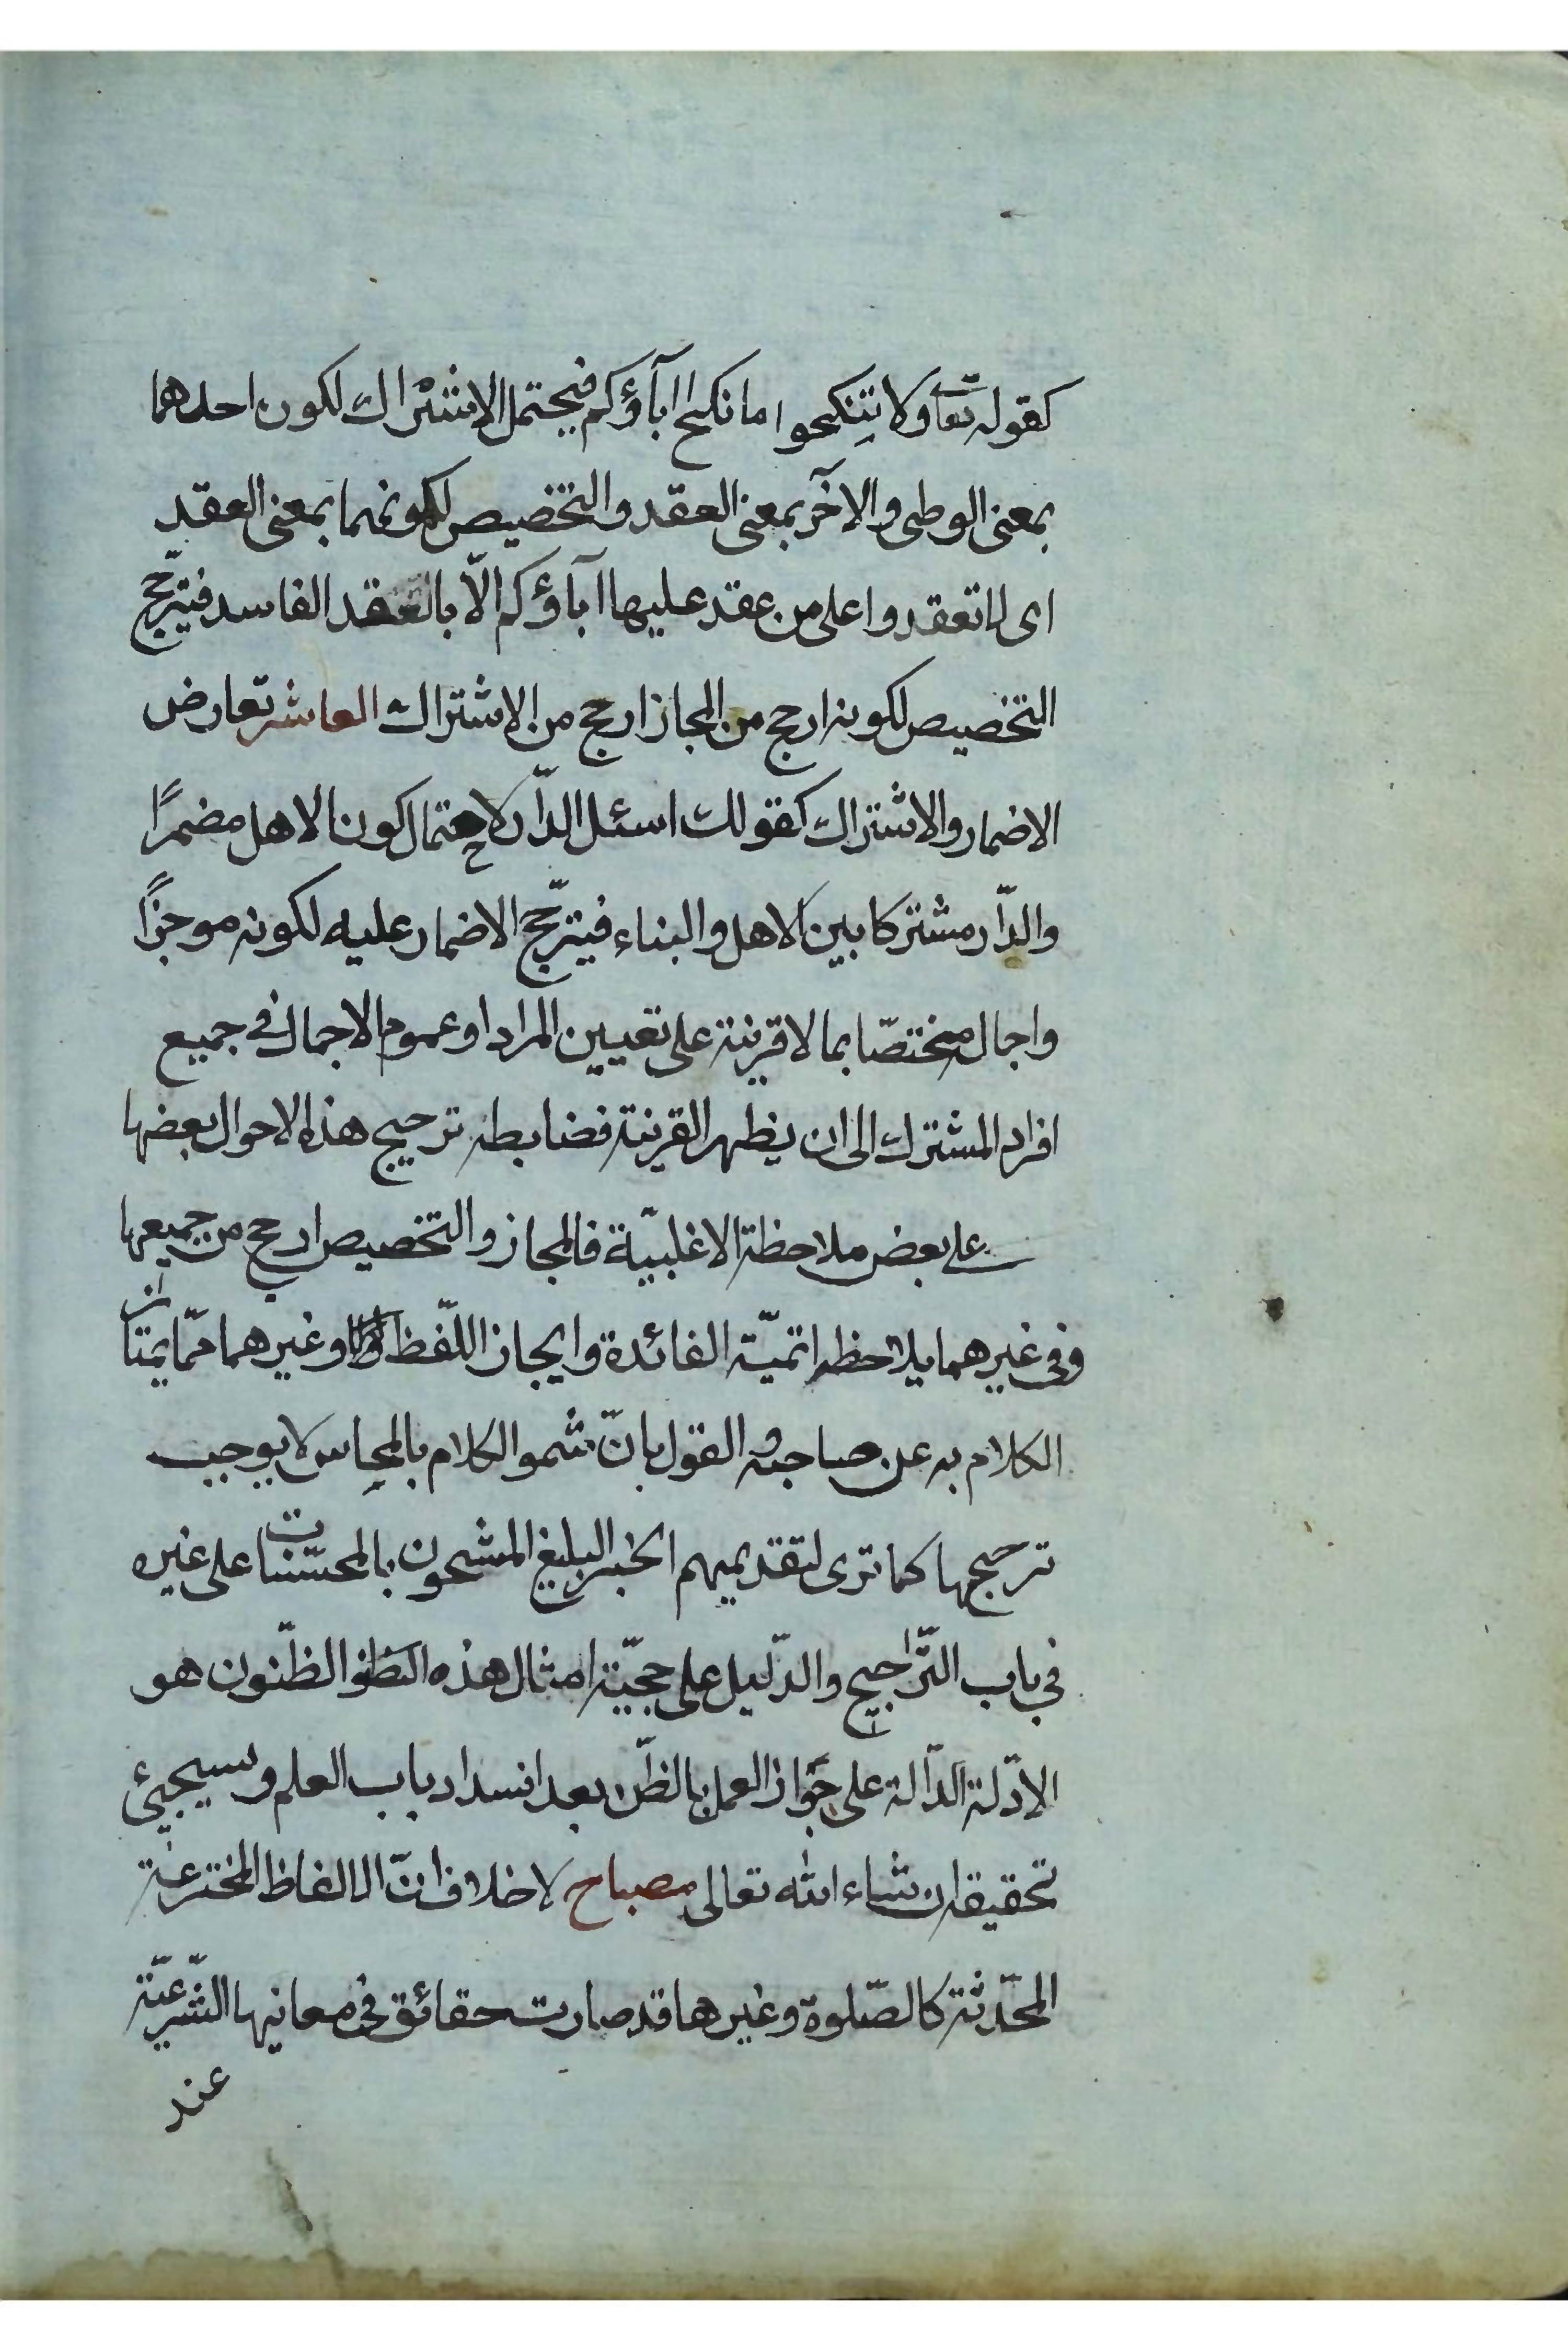 كقوله تعا ولا تنكحوا ما نكح اابآؤكم فيحتمل الاشتراك لكون احدهما
بمعنى الوطى والاخر بمعنى العقد والتخصيص لكونهما بمعنى العقد
اى لا تعقدوا على من عقد عليها اابآؤكم الّا بالعقد الفاسد فيترجّح
التخصيص لكونه ارجح من المجاز ارجح من الاشتراك العاشر تعارض
الاضمار والاشتراك كقولك اسئل الدّار لاحتمال كون الاهل مضمرًا
والدّار مشتركا بين الاهل والبناء فيترجّح الاضمار عليه لكونه موجزًا
واجمال مختصّا بما لا قرينة على تعيين المراد او عموم الاجمال فى جميع
افراد المشترك الى ان يظهر القرينة فضابطه ترجيح هذه الاحوال بعضها
على بعض ملاحظة الاغلبيّة فالمجاز والتخصيص ارجح من جميعها
وفى غيرهما يلاحظ اتميّة الفائدة وايجاز اللّفظ وغيرهما ممّا يمتاز
الكلام به عن صاحبه والقول بانّ شمو الكلام بالمحاسن لا يوجب
ترجيحها كما ترى لتقديمهم الخبر البليغ المشحون بالمحسّنات على غيره
فى باب التّراجيح والدّليل على حجيّة امثال هذه الظنون هو
الادّلة الدّالة على جواز العمل بالظنّ بعد انسداد باب العلم وسيجيئ
تحقيقه ان شاء الله تعالى مصباح لا خلاف انّ الالفاظ المخترعة
المحدّثة كالصّلوة وغيرها قد صارت حقائق فى معانيها الشّرعيّة
عند